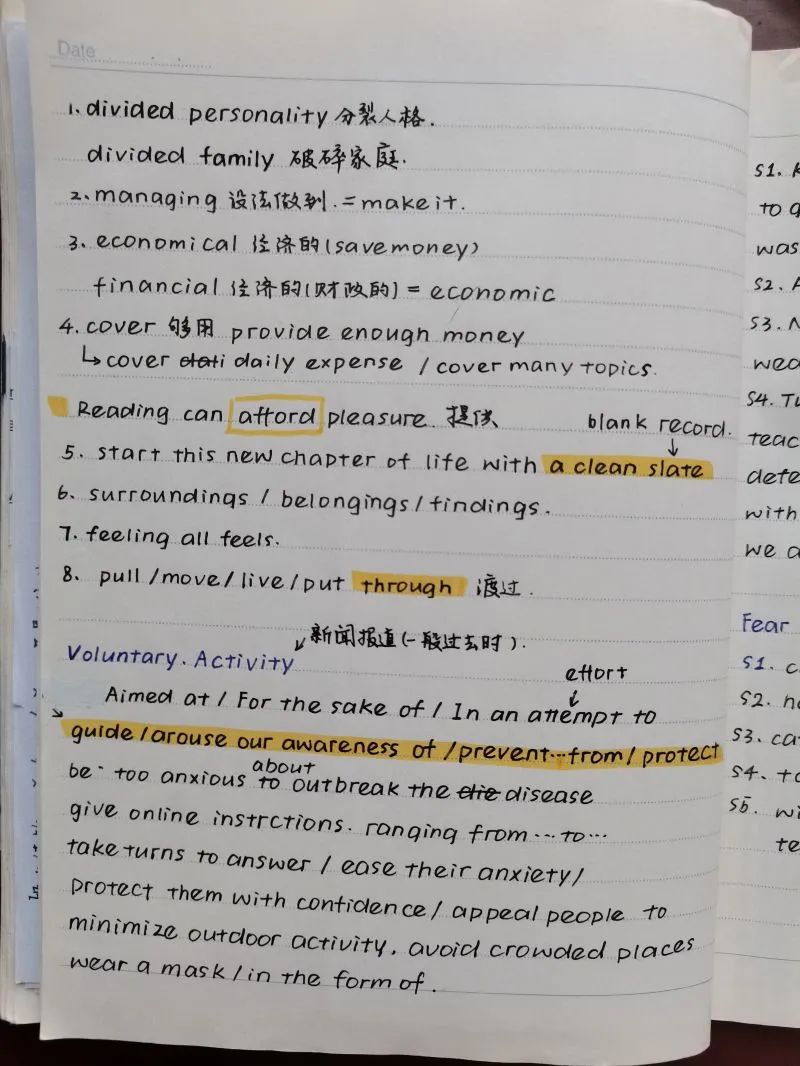 Date
1. divided personality 分裂人格.
divided family 破碎家庭.
2. managing 设法做到. = make it.
3. economical 经济的(save money)
financial 经济的(财政的) = economic
4. cover 够用 provide enough money
↳ cover daily expense / cover many topics.
Reading can afford pleasure. 提供
blank record.
↓
5. start this new chapter of life with a clean slate
6. surroundings / belongings / findings.
7. feeling all feels.
8. pull / move / live / put through 渡过.
↙新闻报道(一般过去时).
Voluntary. Activity
effort
↓
Aimed at / For the sake of / In an attempt to
guide / arouse our awareness of / prevent…from / protect
about
be too anxious to outbreak the disease
give online instrctions. ranging from … to …
take turns to answer / ease their anxiety /
protect them with confidence / appeal people to
minimize outdoor activity. avoid crowded places
wear a mask / in the form of.
S1.
to
was
S2.
S3.
wea
S4.
teac
defe
with
we a
Fear
S1. c
S2.
S3. ca
S4. to
S5. wi
te